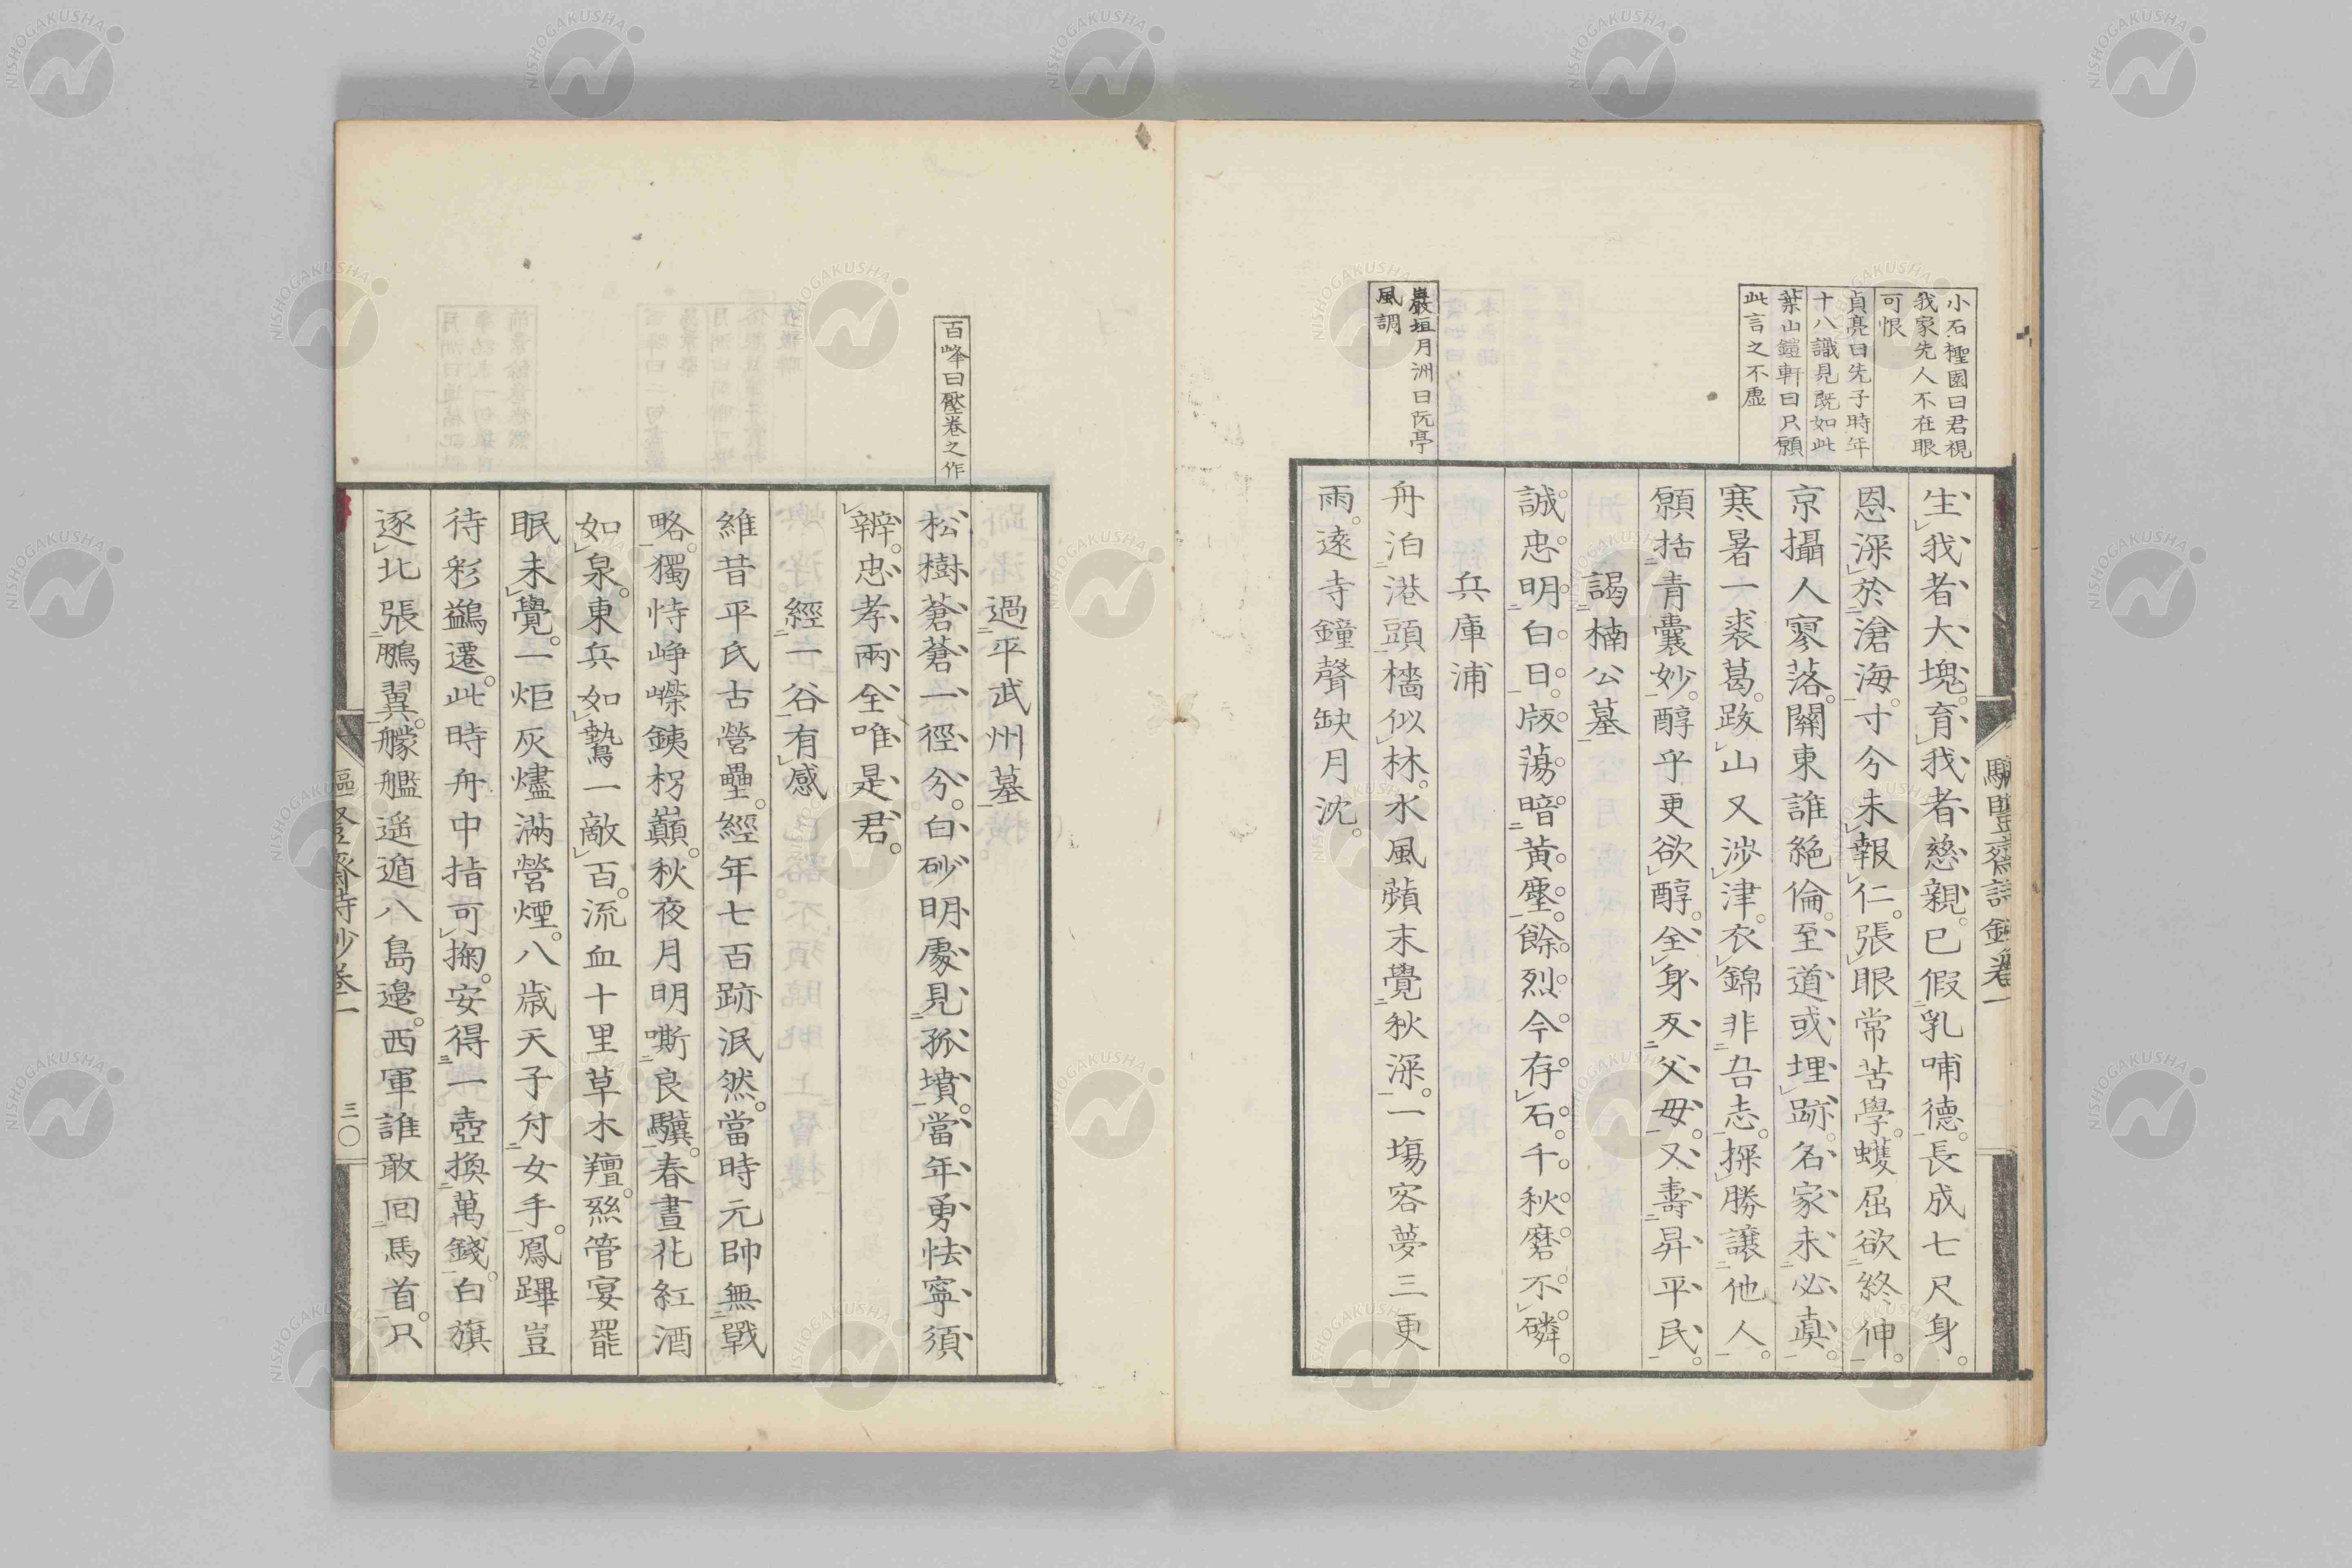 小石櫻園曰君視
我家先人不在眼
可恨
貞亮曰先子時年
十八識見既如此
葉山鎧軒曰只願
此言之不虛
生我者大塊。育我者慈親。已假乳哺德。長成七尺身。
恩深於滄海。寸分未報仁。張眼常苦學。蠖屈欲終伸。
京攝人寥落。關東誰絕倫。至道或埋跡。名家未必真。
寒暑一裘葛。跋山又涉津。衣錦非吾志。探勝讓他人。
願括青囊妙。醇乎更欲醇。全身及父母。又壽昇平民。
謁楠公墓
誠忠明白日。版蕩暗黃塵。餘烈今存石。千秋磨不磷。
兵庫浦
巖垣月洲曰阮亭
風調
舟泊港頭檣似林。水風蘋末覺秋深。一塲客夢三更
雨。遠寺鐘聲缺月沈。
過平武州墓
百峰曰壓卷之作
松樹蒼蒼一徑分。白砂明處見孤墳。當年勇怯寧須
辨。忠孝兩全唯是君。
經一谷有感
維昔平氏古營壘。經年七百跡泯然。當時元帥無戰
略。獨恃崢嶸鐵枴巔。秋夜月明嘶良驥。春晝花紅酒
如泉。東兵如鷙一敵百。流血十里草木羶。絲管宴罷
眠未覺。一炬灰燼滿營煙。八歲天子付女手。鳳蹕豈
待彩鷁遷。此時舟中指可掬。安得一壺換萬錢。白旗
逐北張鵬翼。艨艦遥遁八島邊。西軍誰敢回馬首。只
三〇